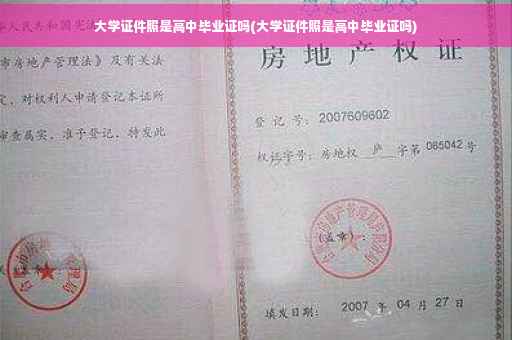 大学证件照是高中毕业证吗(大学证件照是高中毕业证吗)
华人民共和国宪法
市房地产管理法》及有关法
定，对权利人申请登记本证所
审查属实，准予登记，特发此
房地产权证
登记号：2007609602
权证字号：房地权 庐 字第 085042 号
(盖章)：
填发日期：2007 年 04 月 27 日